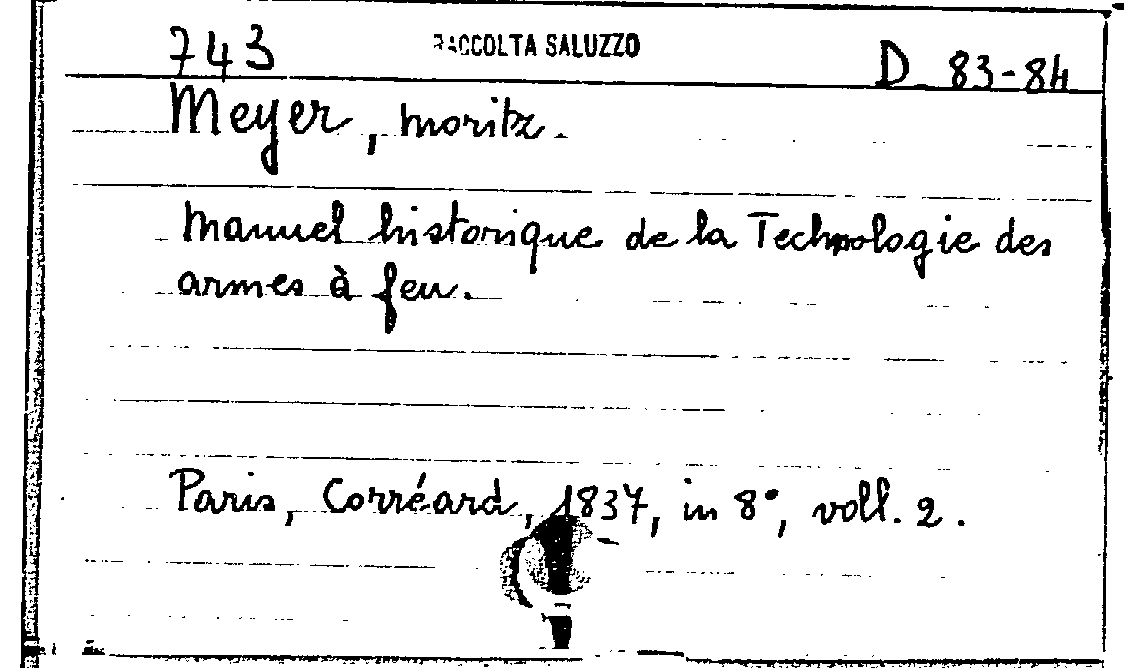 743 RACCOLTA SALUZZO D 83-84
Meyer, Moritz.
Manuel historique de la Technologie des
armes à feu.
Paris, Corréard, 1837, in 8°, voll. 2.